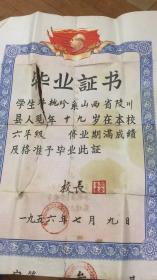 毕业証书
学生 桃珍系山西省陵川
县人现年十九岁在本校
六年级 修业期满成绩
及格准予毕业此証
校長
一九五六年七月九日